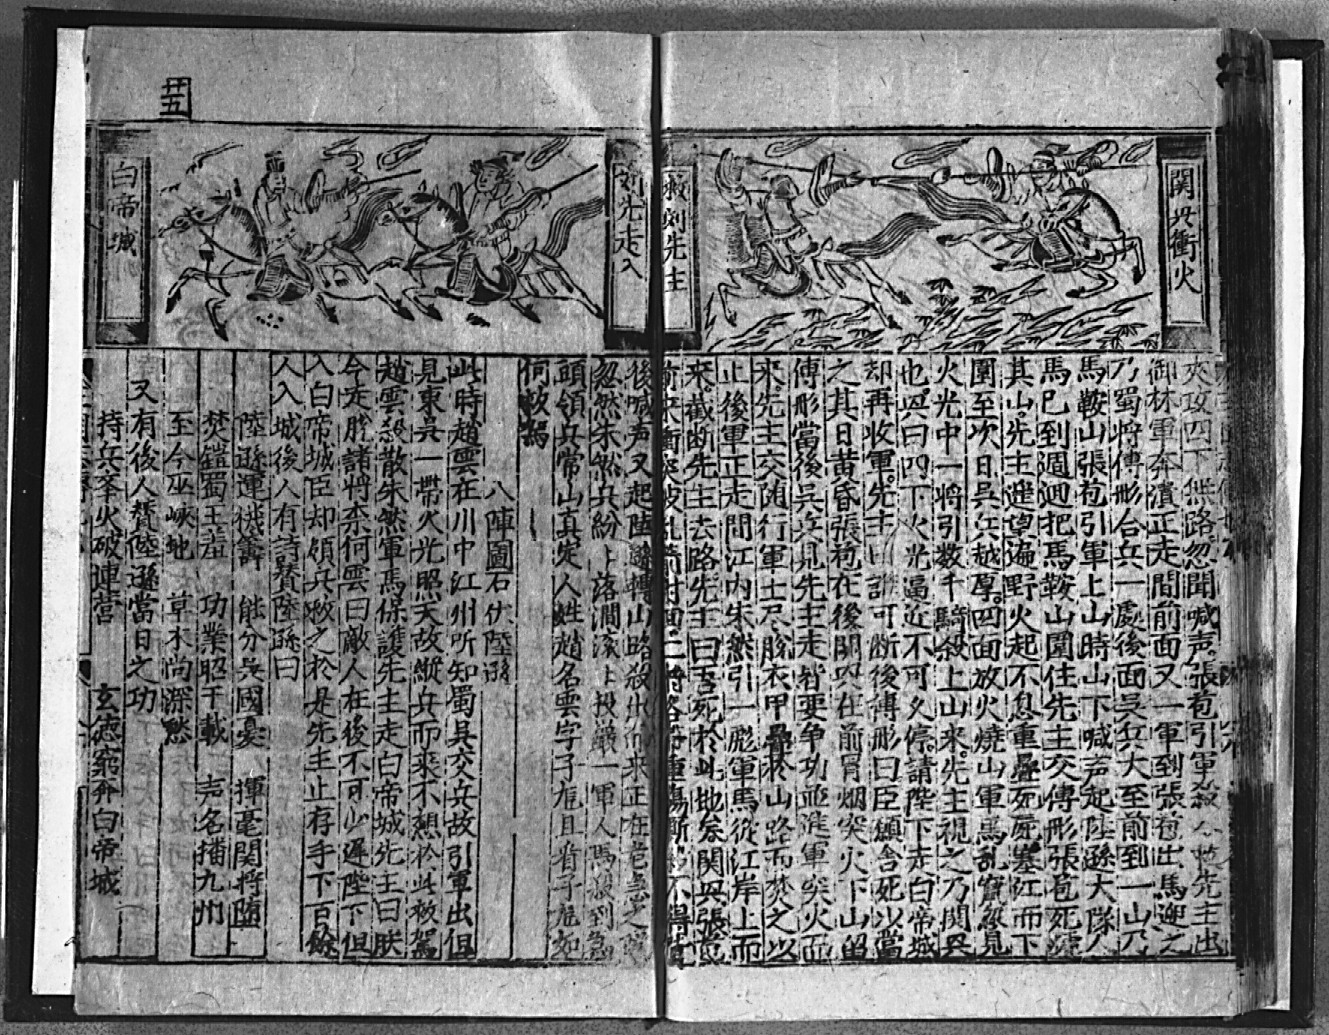 関興衝火
救刘先主
夾攻四下無路忽聞喊声張苞引軍殺入救先主出
御林軍奔潰正走間前面又一軍到張苞出馬迎之
乃蜀将傅彤合兵一處後面吳兵大至前到一山乃
馬鞍山張苞引軍上山時山下喊声起陸遜大隊人
馬已到週迴把馬鞍山圍住先主交傅彤張苞死據
其山先主遥望遍野火起不息重疊死屍塞江而下
圍至次日吳兵越厚四面放火燒山軍馬乱竄忽見
火光中一将引数千騎殺上山來先主視之乃関興
也興曰四下火光逼近不可久停請陛下走白帝城
却再收軍先主曰誰可断後傅彤曰臣願舍死以當
之其日黄昏張苞在後関興在前冒烟突火下山留
傅彤當後吳兵見先主走皆要争功並進軍突火而
來先主交随行軍士尽脱衣甲疊於山路而焚之以
止後軍正走間江内朱然引一彪軍馬從江岸上而
來截断先主去路先主曰吾死於此地矣関興張苞
刘先走入
白帝城
廿五
後喊声又起陸遜轉山路殺出
忽然朱然兵紛〻落澗滚〻投巖一軍人馬殺到
頭領兵常山真定人姓趙名雲字子龍且看子龍如
何救駕
八陣圖石伏陸遜
此時趙雲在川中江州听知蜀吳交兵故引軍出但
見東吳一帶火光照天故縱兵而來不想於此救駕
趙雲殺散朱然軍馬保護先主走白帝城先主曰朕
今走脱諸将柰何雲曰敵人在後不可少遲陛下但
入白帝城臣却領兵救之於是先主止存手下百餘
人入城後人有詩賛陸遜曰
陸遜運機籌 能分吳國憂 揮毫関将墮
焚鎧蜀王羞 功業昭千載 声名播九州
至今巫峡地 草木尚深愁
又有後人賛陸遜當日之功
持兵峯火破連营 玄德窮奔白帝城